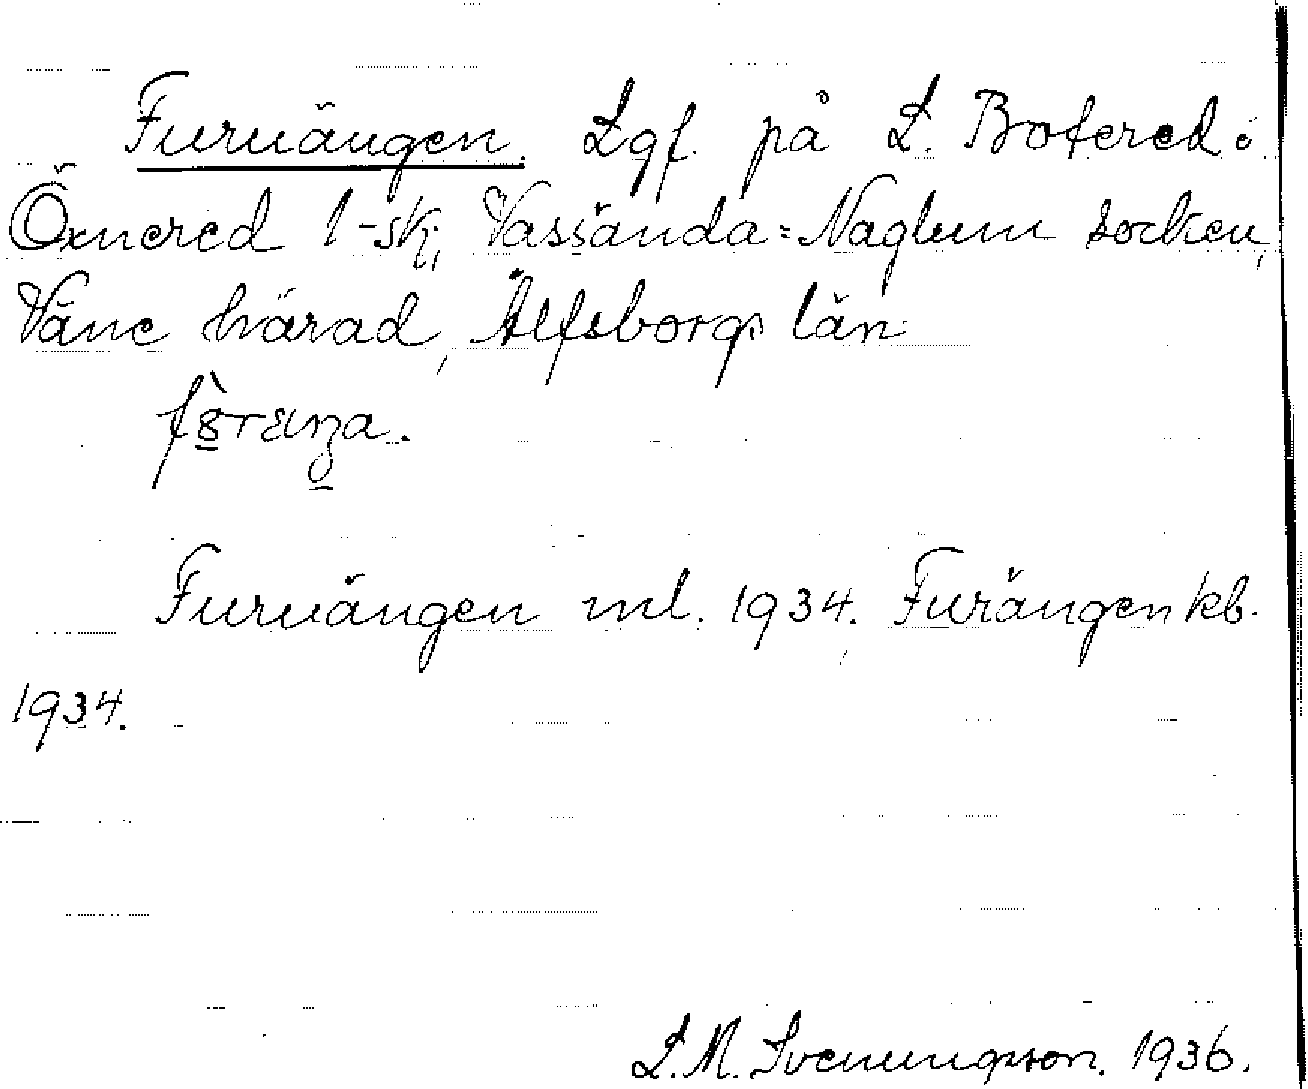 Furuängen. Lgf. på L. Botered i
Öxnered 1-sk, Vassända=Naglum socken,
Väne härad, Älfsborgs län
Furuängen ml. 1934. Furängen kb.
1934.
S. M. Svenungsson. 1936.